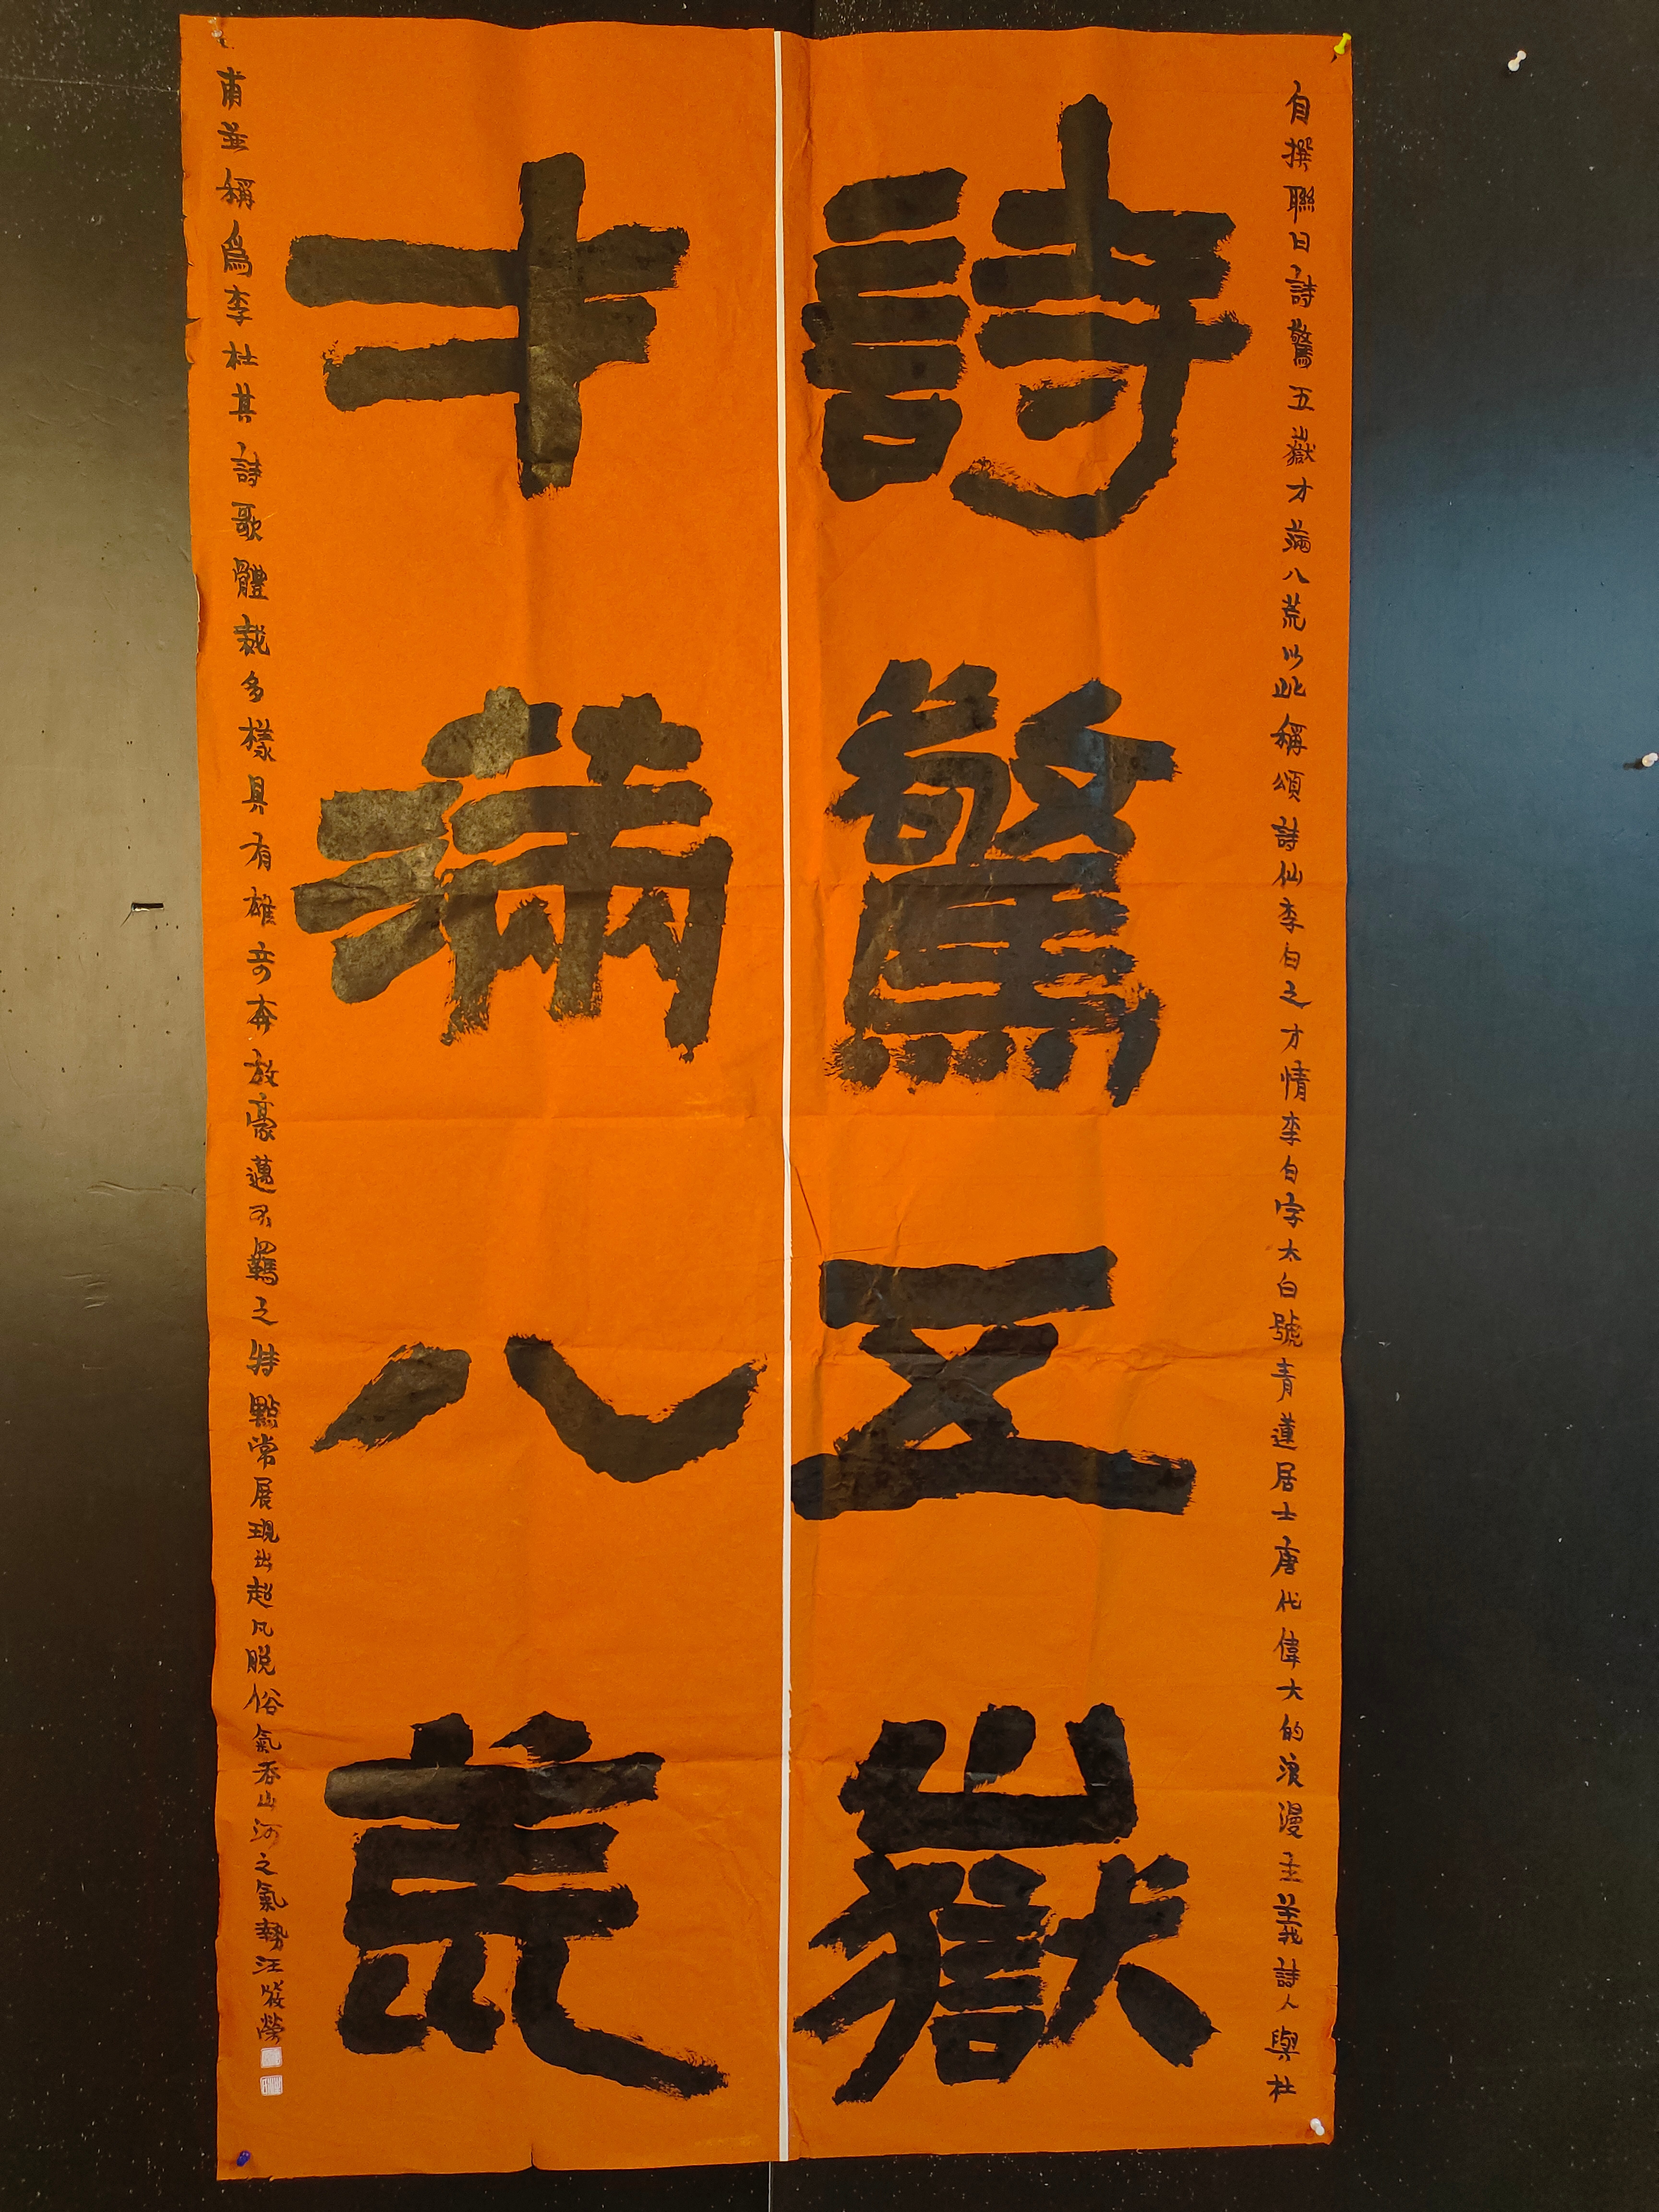 自撰聯曰詩驚五嶽才滿八荒以此稱頌詩仙李白之才情李白字太白號青蓮居士唐代偉大的浪漫主義詩人與杜
詩驚五嶽
才滿八荒
甫並稱爲李杜其詩歌體裁多樣具有雄奇奔放豪邁不羈之特點常展現出超凡脱俗氣吞山河之氣勢汪榮